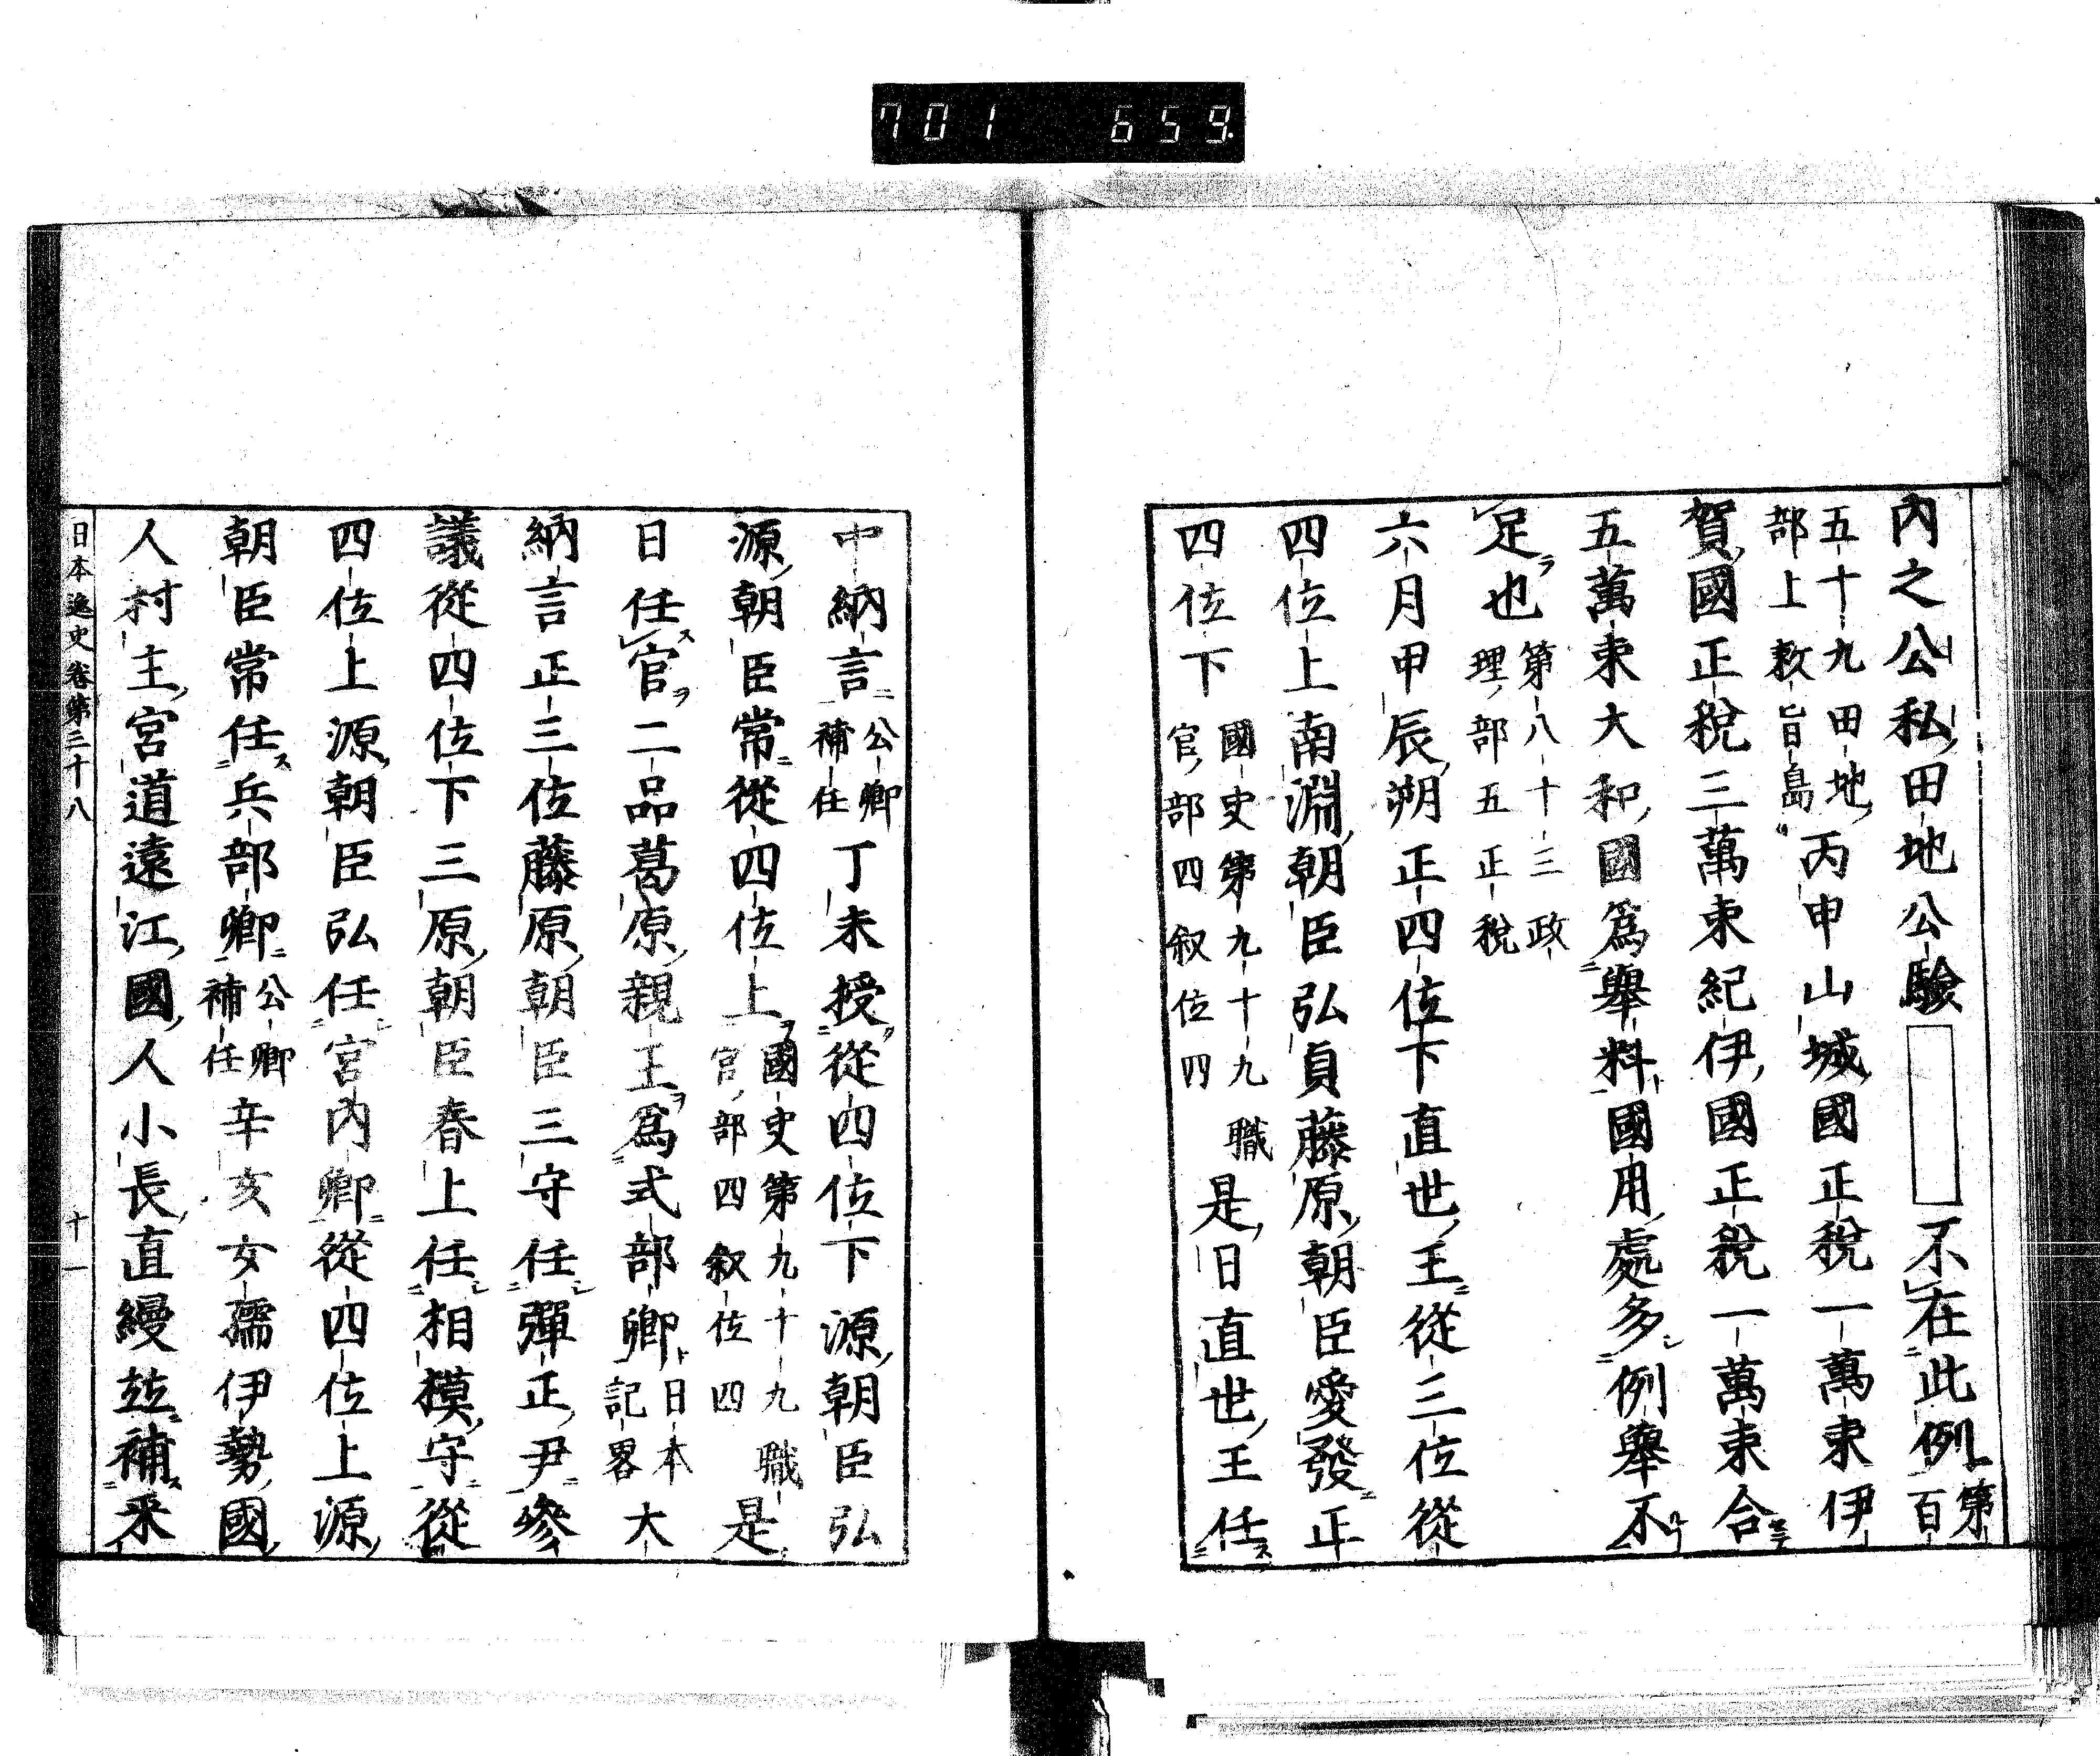 701 659
內之公私田地公驗 不在此例第百
五十九田地
部上敕旨島 丙申山城國正税一萬束伊
賀國正税三萬束紀伊國正税一萬束合
五萬束大和國爲擧料國用處多例擧不
足也第八十三政
理部五正税
六月甲辰朔正四位下直世王從三位從
四位上南淵朝臣弘貞藤原朝臣愛發正
四位下國史第九十九職
官部四叙位四是日直世王任
中納言公卿
補任丁未授從四位下源朝臣弘
源朝臣常從四位上國史第九十九職
官部四叙位四是
日任官二品葛原親王爲式部卿日本
記畧大
納言正三位藤原朝臣三守任彈正尹參
議從四位下三原朝臣春上任相模守從
四位上源朝臣弘任宮內卿從四位上源
朝臣常任兵部卿公卿
補任辛亥女孺伊勢國
人村主宮道遠江國人小長直縵竝補釆
日本逸史卷第三十八 十一